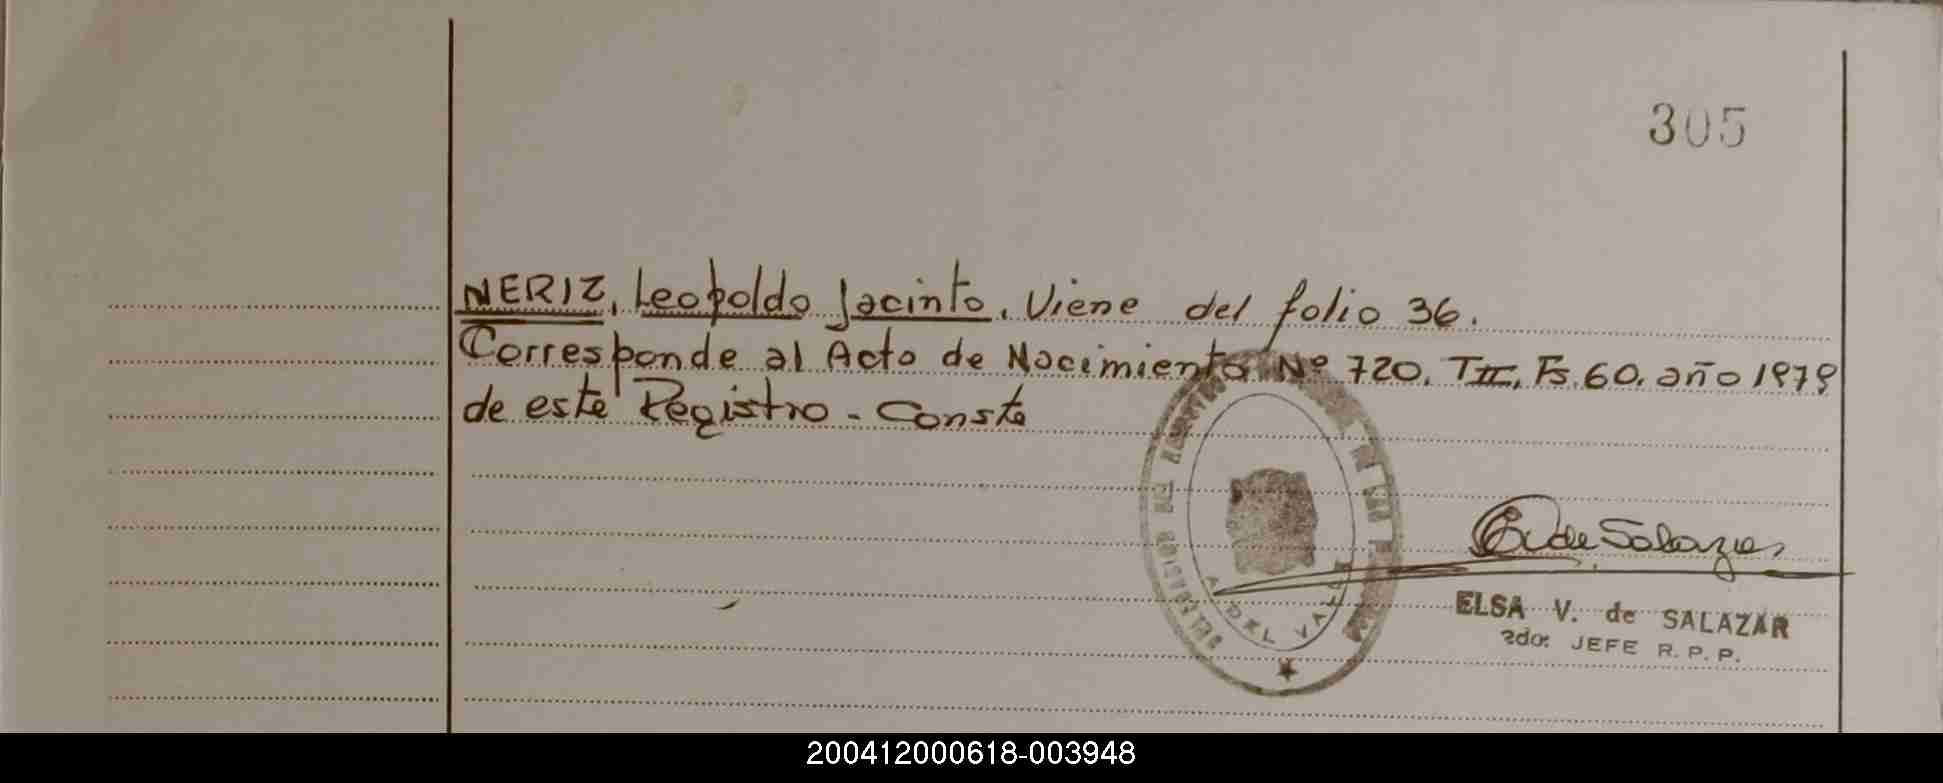 305
NERIZ, Leopoldo Jacinto. Viene del folio 36.
Corresponde al Acta de Nacimiento Nº 720. TII. Fs. 60. año 1979
de este Registro - Conste
E V de Salazar
DEL VALLE
ELSA V. de SALAZAR
2do. JEFE R. P. P.
200412000618-003948